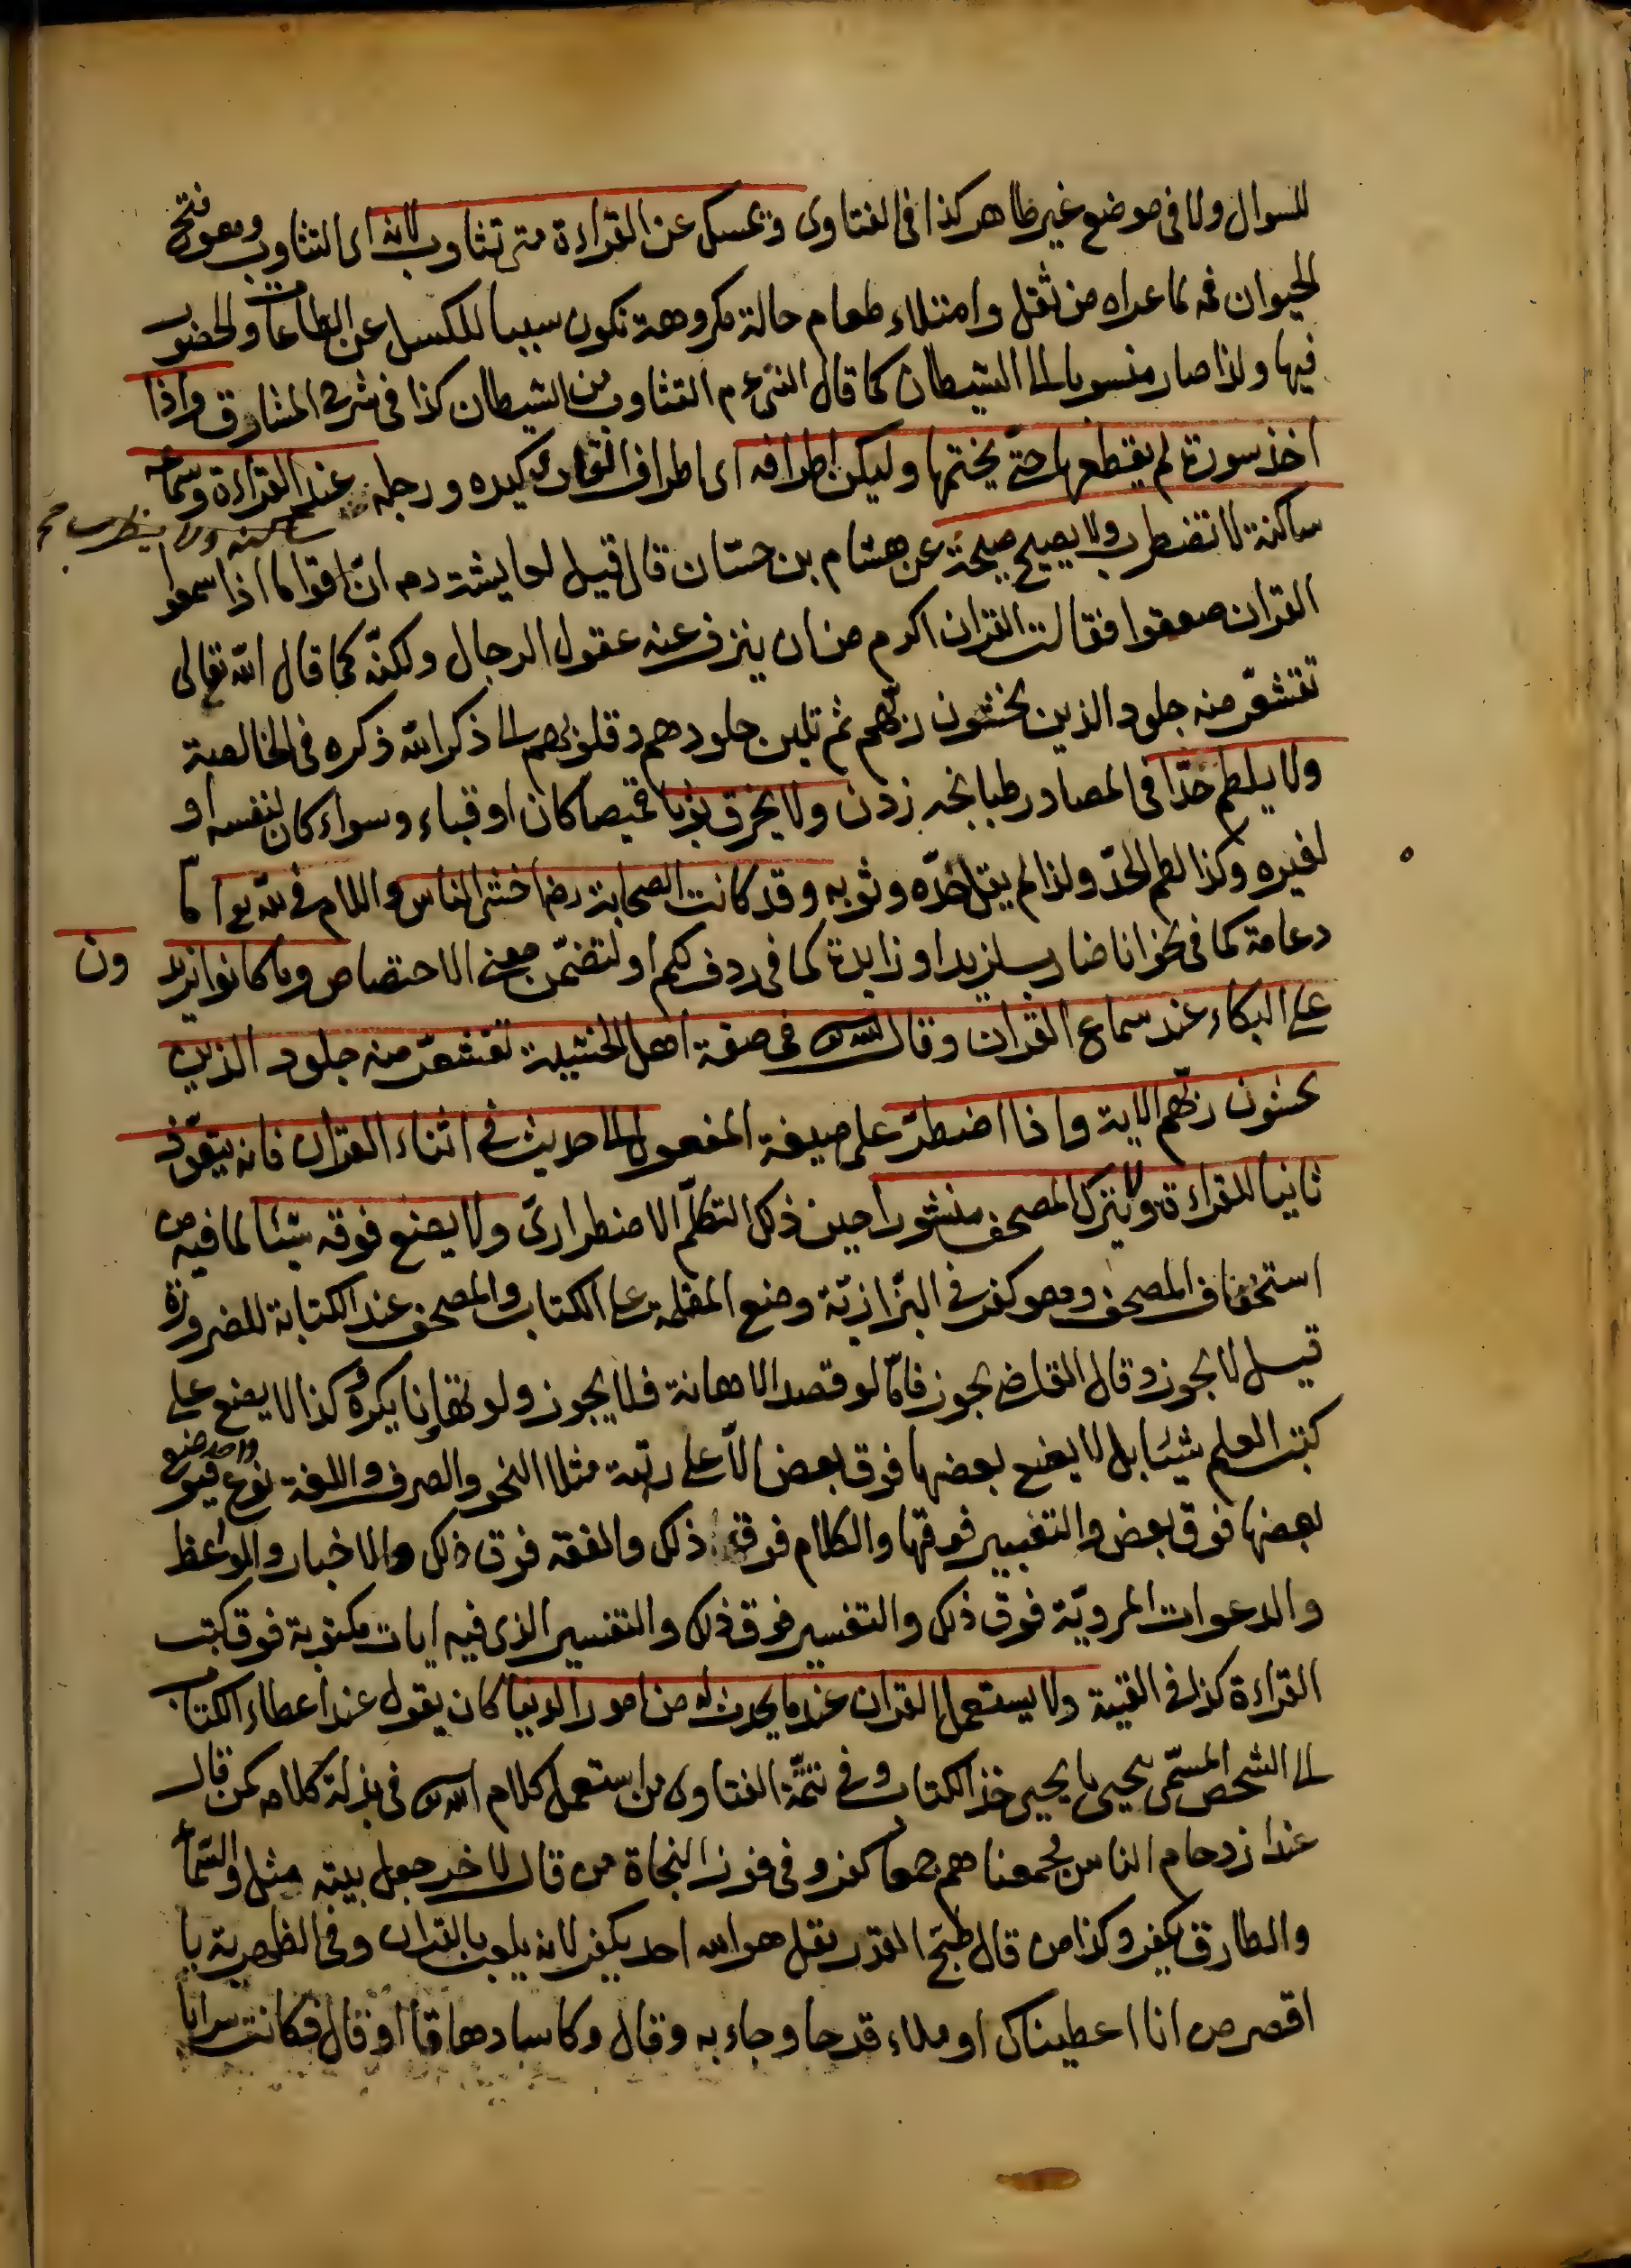 للسوال ولا فى موضع غير طاهر كذا فى الفتاوى ويمسك عن القراءة متى تثاوب لانه اى التثاوب وهو فتح
الحيوان فمه لما عراه من ثقل وامتلاء طعام حالة مكروهة تكون سببا للكسل عن الطاعات والحضور
فيها ولذا صار منسوبا الى الشيطان كما قال النبى عم التثاوب من الشيطان كذا فى شرح المشارق واذا
اخذ سورة لم يقطعها حتى يختمها وليكن اطرافه اى اطراف القارى كيده ورجله عند القراءة وسماعه
ساكنة لا تضطرب ولا يصيح صيحة عن هشام بن حسّان قال قيل لعايشة رضه انّ اقواما اذا سمعوا
القران صعقوا فقالت القران اكرم من ان ينزف عنه عقول الرجال ولكنّه كما قال الله تعالى
تقشعرّ منه جلود الذين يخشون ربّهم ثم تلين جلودهم وقلوبهم الى ذكر الله ذكره فى الخالصة
ولا يلطم خدّا فى المصادر طبانجه زدن ولا يخرق ثوبا قميصا كان او قباء وسواء كان لنفسه او
لغيره وكذا لطم الخدّ ولذا لم يقل خدّه وثوبه وقد كانت الصحابة رضه اخشى الناس واللام فى لله تع اما
دعامة كما فى نحو انا ضارب لزيد او زايدة كما فى ردف لكم او لتضمّن معنى الاختصاص وما كانوا يزيد
ون
على البكاء عند سماع القران وقال الله تع فى صفة اهل الخشية تقشعرّ منه جلود الذين
يخشون ربّهم الاية واذا اضطرّ على صيغة المفعول الى حديث فى اثناء القران فانه يتعوّذ
ثانيا للقراءة ولا يترك المصحف منشورا حين ذلك التكلّم الاضطرارىّ ولا يضع فوقه شيئا لما فيه من
استخفاف المصحف وهو كفر فى البزّازيّة وضع المقلمة على الكتاب والمصحف عند الكتابة للضرورة
قيل لا يجوز وقال القاضى يجوز فامّا لو قصد الاهانة فلا يجوز ولو تهاونا يكره كذا لا يضع على
كتب العلم شيئا بل لا يضع بعضها فوق بعض الّا على رتبة مثلا النحو والصرف واللغة نوع واحد فيوضع
بعضها فوق بعض والتعبير فوقها والكلام فوق ذلك والفقه فوق ذلك والاخبار والمواعظ
والدعوات المرويّة فوق ذلك والتفسير فوق ذلك والتفسير الذى فيه ايات مكتوبة فوق كتب
القراءة كذا فى القنية ولا يستعمل القران عند ما يحدث له من امور الدنيا كان يقول عند اعطاء الكتاب
الى الشخص المسمّى بيحيى يا يحيى خذ الكتاب وفى تتمّة الفتاوى من استعمل كلام الله تع فى بذلة كلامه كمن قال
عند ازدحام الناس فجمعناهم جمعا كفر وفى فوز النجاة من قال لاخر جعل بيته مثل والسّماء
والطارق يكفر وكذا من قال طبخ القدر بقل هو الله احد يكفر لانه يلعب بالقران وفى الظهيرية يا
اقصر من انا اعطيناك او ملاء قدحا وجاء به وقال وكاسا دهاقا او قال فكانت سرابا